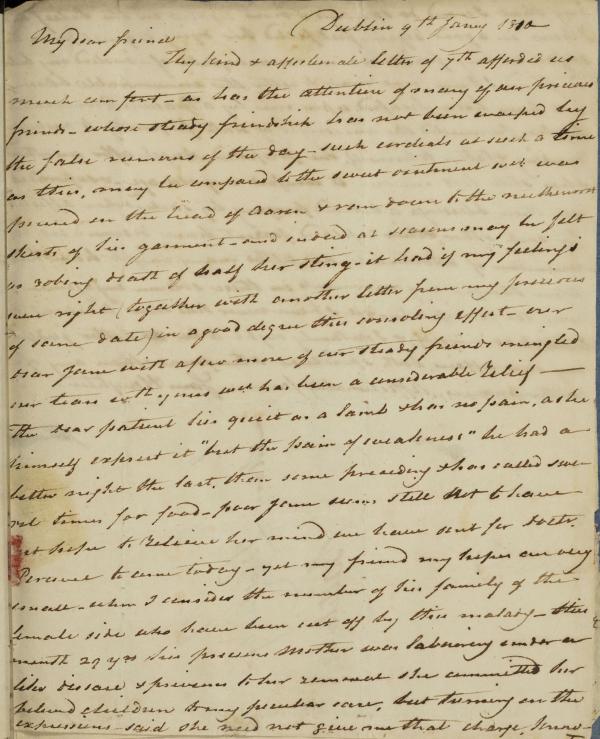 Dublin 9th Jany 1810
My dear friend
Thy kind & affectionate letter of 7th afforded us
much comfort - as has the attention of many of our precious
friends - whose steady friendship has not been warped by
the false rumours of the day - such cordials at such a time
as this, may be compared to the sweet ointment wch was
poured on the head of Aaron & ran down to the nethermost
skirts of his garment - and indeed at seasons may be felt
as robing death of half her sting - it had if my feelings
were right (together with another letter from my precious
of same date) in a good degree this consoling effect - over
dear Jane with a few more of our steady friends mingled
our tears with yours wch has been a considerable relief —
the dear patient lies quiet as a lamb & has no pain, as he
himself exprest it "but the pain of weakness" he had a
better night the last, than some preceding & has called seve-
ral times for food - poor Jane seems still not to have
hope to relieve her mind we have sent for doctr.
Perceval to come today - yet my friend my hopes are very
small - when I consider the number of his family of the
female side who have been cut off by this malady - this
month 29 yrs his precious Mother was labouring under a
like disease, & previous to her removal she committed her
beloved children to my peculiar care, but turning on the
expression - said she need not give me that charge, know-